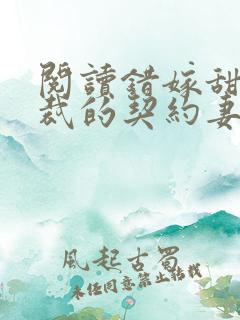 閱讀錯嫁甜
裁的契約妻
風起古蜀
未經同意禁止轉載